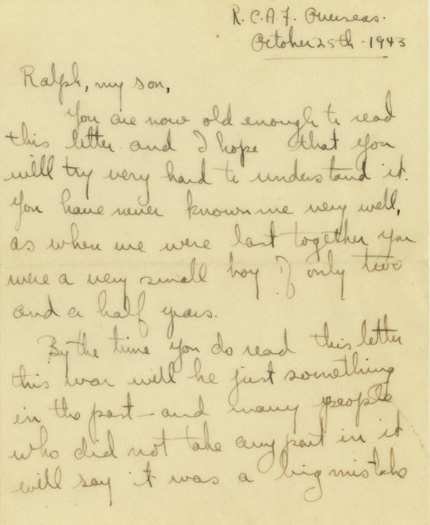 R.C.A.F. Overseas.
October 25th - 1943
Ralph, my son,
You are now old enough to read
this letter and I hope that you
will try very hard to understand it.
You have never known me very well,
as when we were last together you
were a very small boy of only two
and a half years.
By the time you do read this letter
this war will be just something
in the past - and many people
who did not take any part in it
will say it was a big mistake